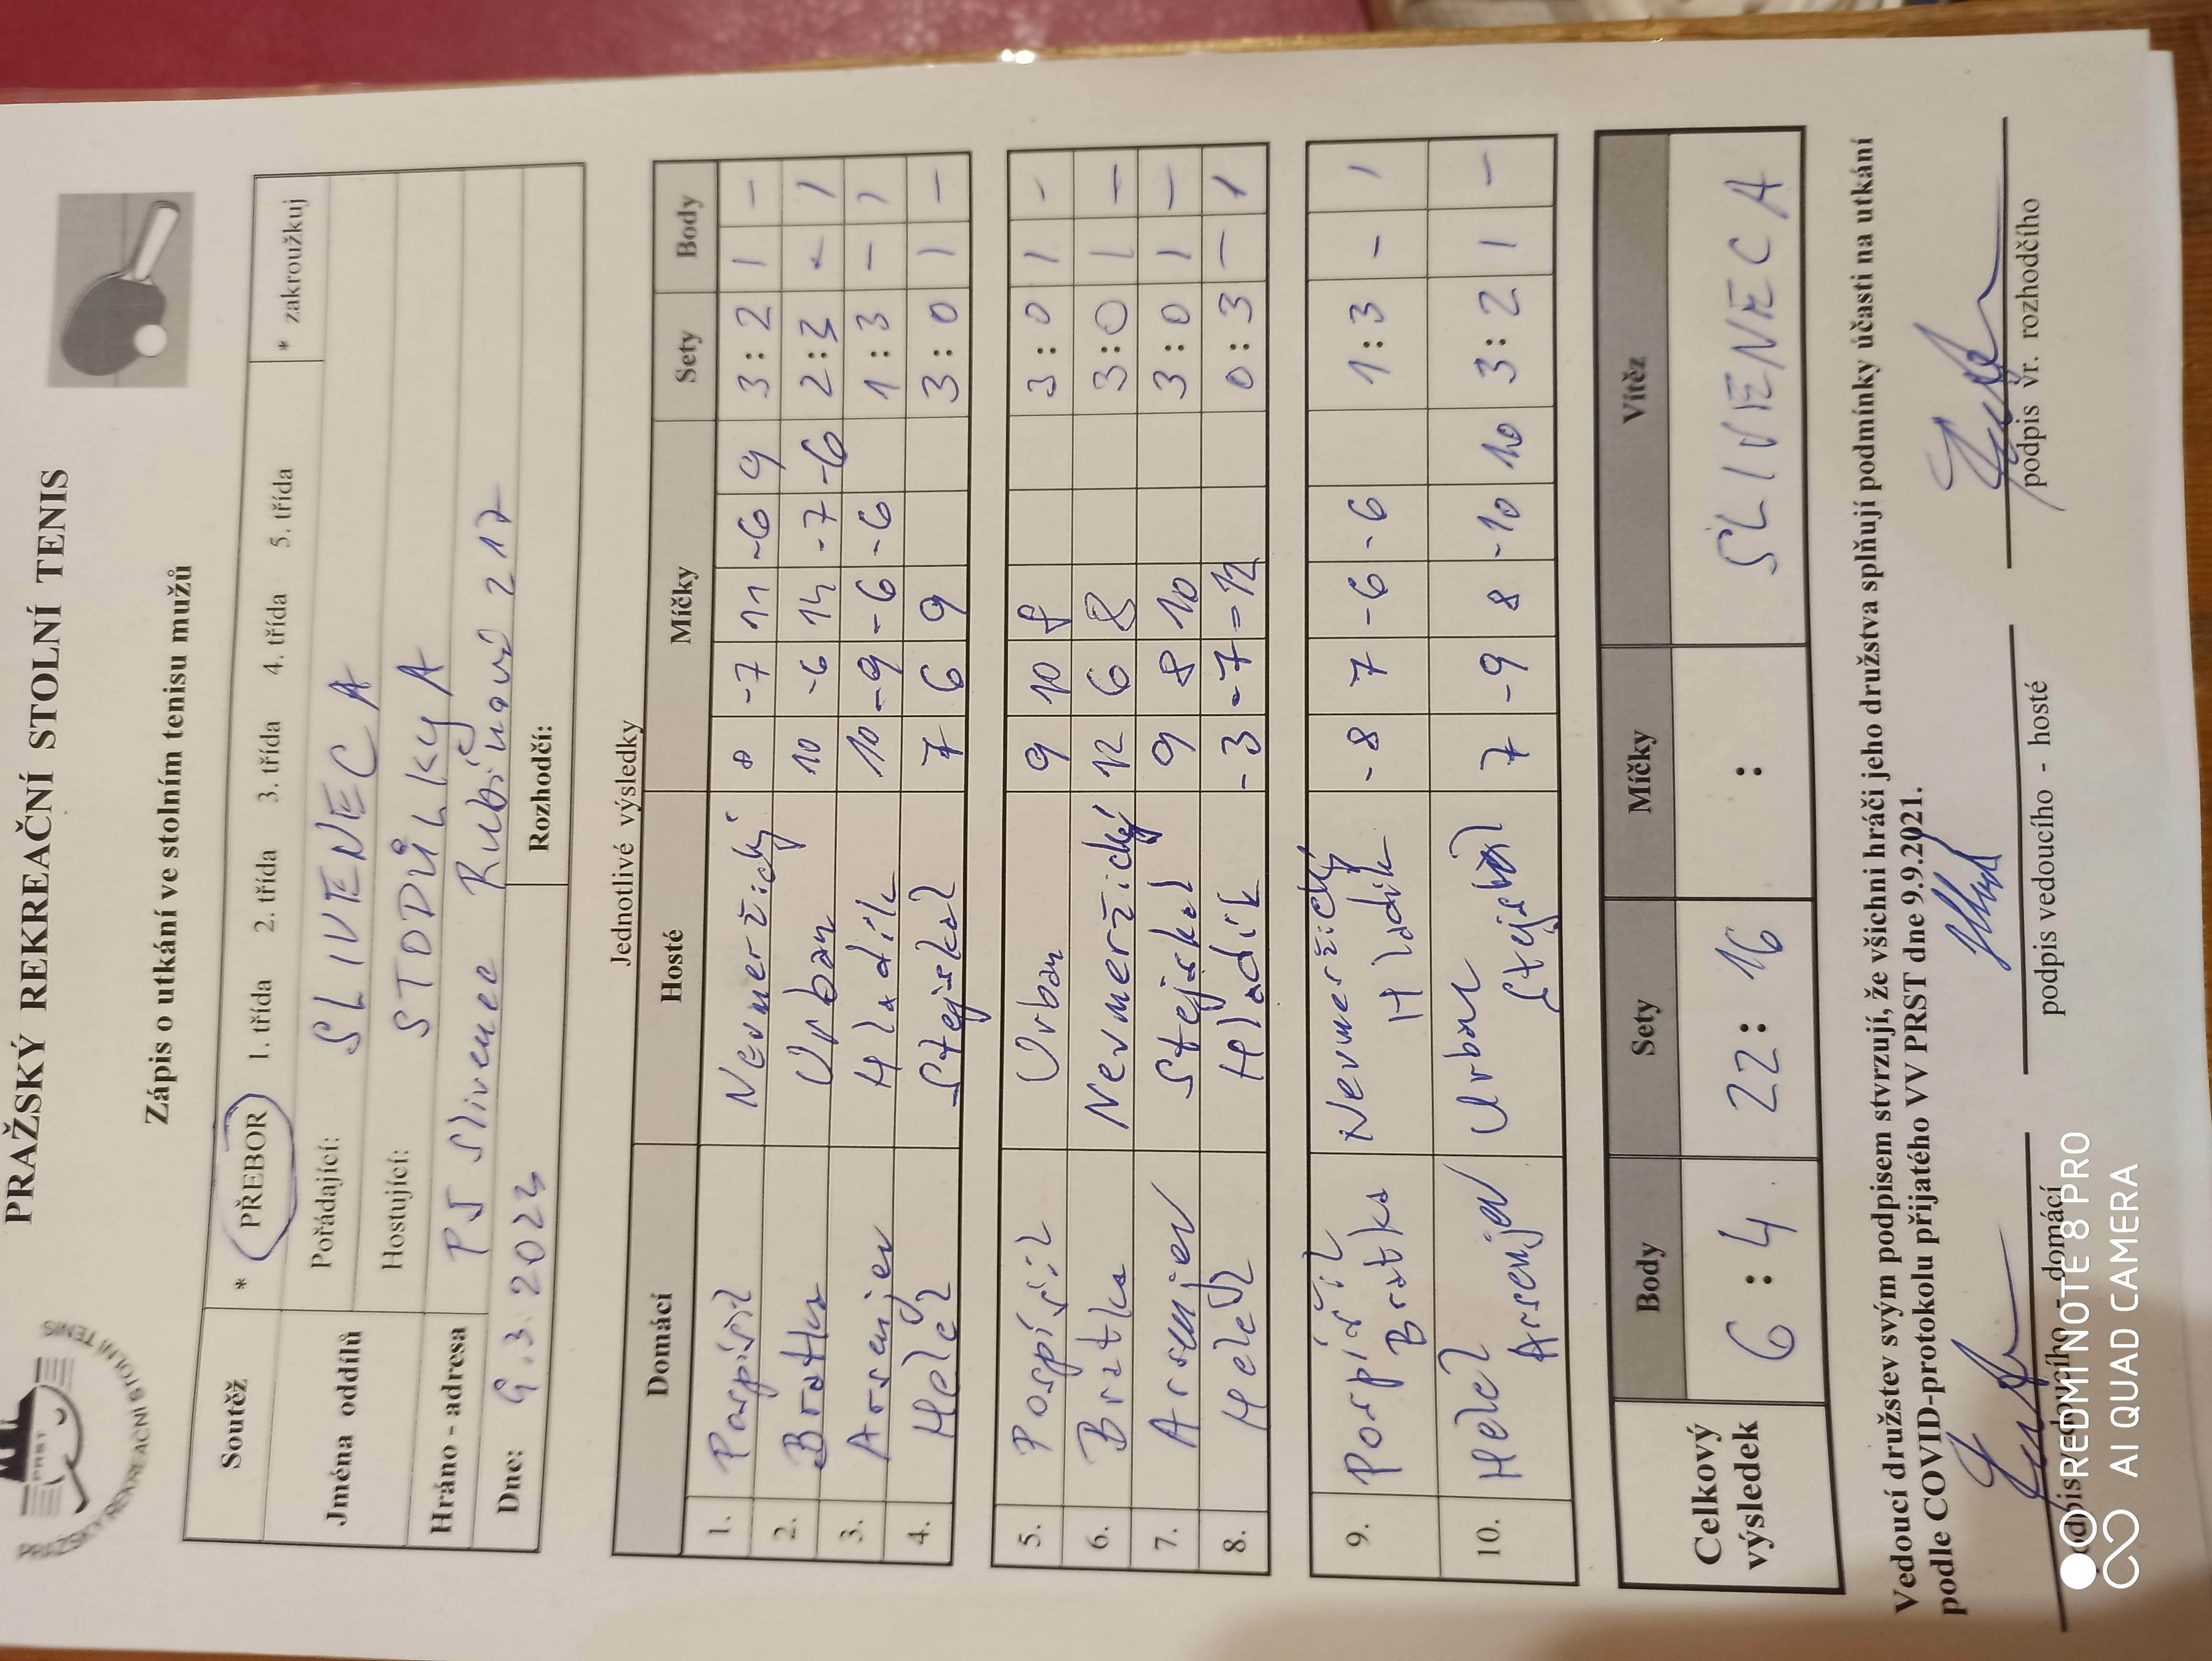 PRAŽSKÝ REKREAČNÍ STOLNÍ TENIS
PRST
PRAŽSKÝ REKREAČNÍ STOLNÍ TENIS
Zápis o utkání ve stolním tenisu mužů
Soutěž * PŘEBOR 1. třída 2. třída 3. třída 4. třída 5. třída * zakroužkuj
Jména oddílů Pořádající: SLIVENEC A
Hostující: STODŮLKY A
Hráno - adresa PJ Slivenec Rubínová 217
Dne: 9.3.2023 Rozhodčí:
Jednotlivé výsledky
Domácí Hosté Míčky Sety Body
1. Pospíšil Nevmeržický 8 -7 11 -6 9 3:2 1 -
2. Bratka Urban 10 -6 14 -7 -6 2:3 - 1
3. Arsenjev Hladík 10 -9 -6 -6 1:3 - 1
4. Helel Stejskal 7 6 9 3:0 1 -
5. Pospíšil Urban 9 10 8 3:0 1 -
6. Bratka Nevmeržický 12 6 8 3:0 1 -
7. Arsenjev Stejskal 9 8 10 3:0 1 -
8. Hladík -3 -7 -12 0:3 - 1
9. Pospíšil Nevmeržický -8 7 -6 -6 1:3 - 1
Bratka Hladík
10. Helel Urban 7 -9 8 -10 10 3:2 1 -
Arsenjev Stejskal
Celkový výsledek Body Sety Míčky Vítěz
6:4 22:16 : SLIVENEC A
Vedoucí družstev svým podpisem stvrzují, že všichni hráči jeho družstva splňují podmínky účasti na utkání
podle COVID-protokolu přijatého VV PRST dne 9.9.2021.
podpis vedoucího - domácí podpis vedoucího - hosté podpis vr. rozhodčího
REDMI NOTE 8 PRO
AI QUAD CAMERA